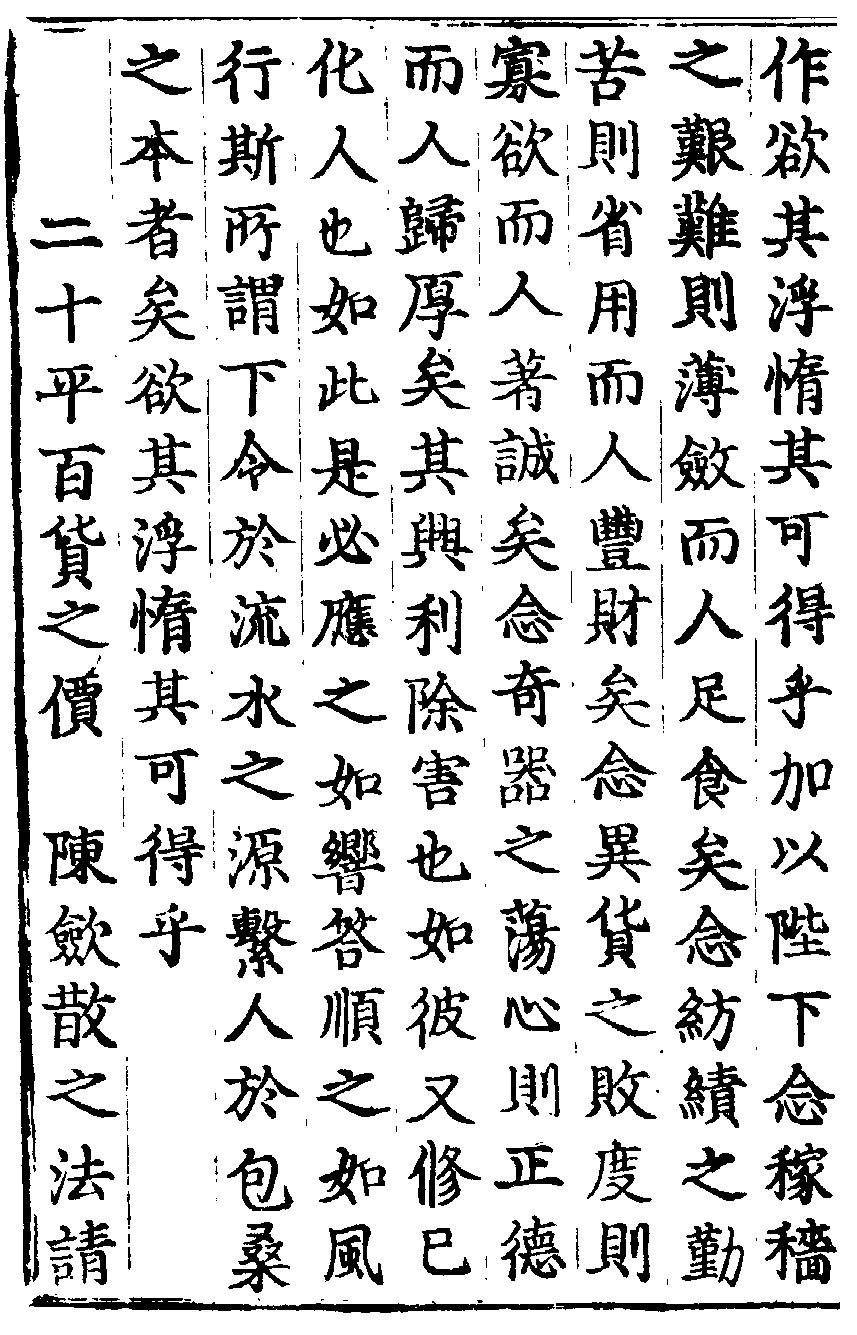 作欲其浮惰其可得乎加以陛下念稼穡
之艱難則薄斂而人足食矣念紡績之勤
苦則省用而人豐財矣念異貨之敗度則
寡欲而人著誠矣念奇器之蕩心則正德
而人歸厚矣其興利除害也如彼又修已
化人也如此是必應之如響答順之如風
行斯所謂下令於流水之源繫人於包桑
之本者矣欲其浮惰其可得乎
二十平百貨之價 陳斂散之法請